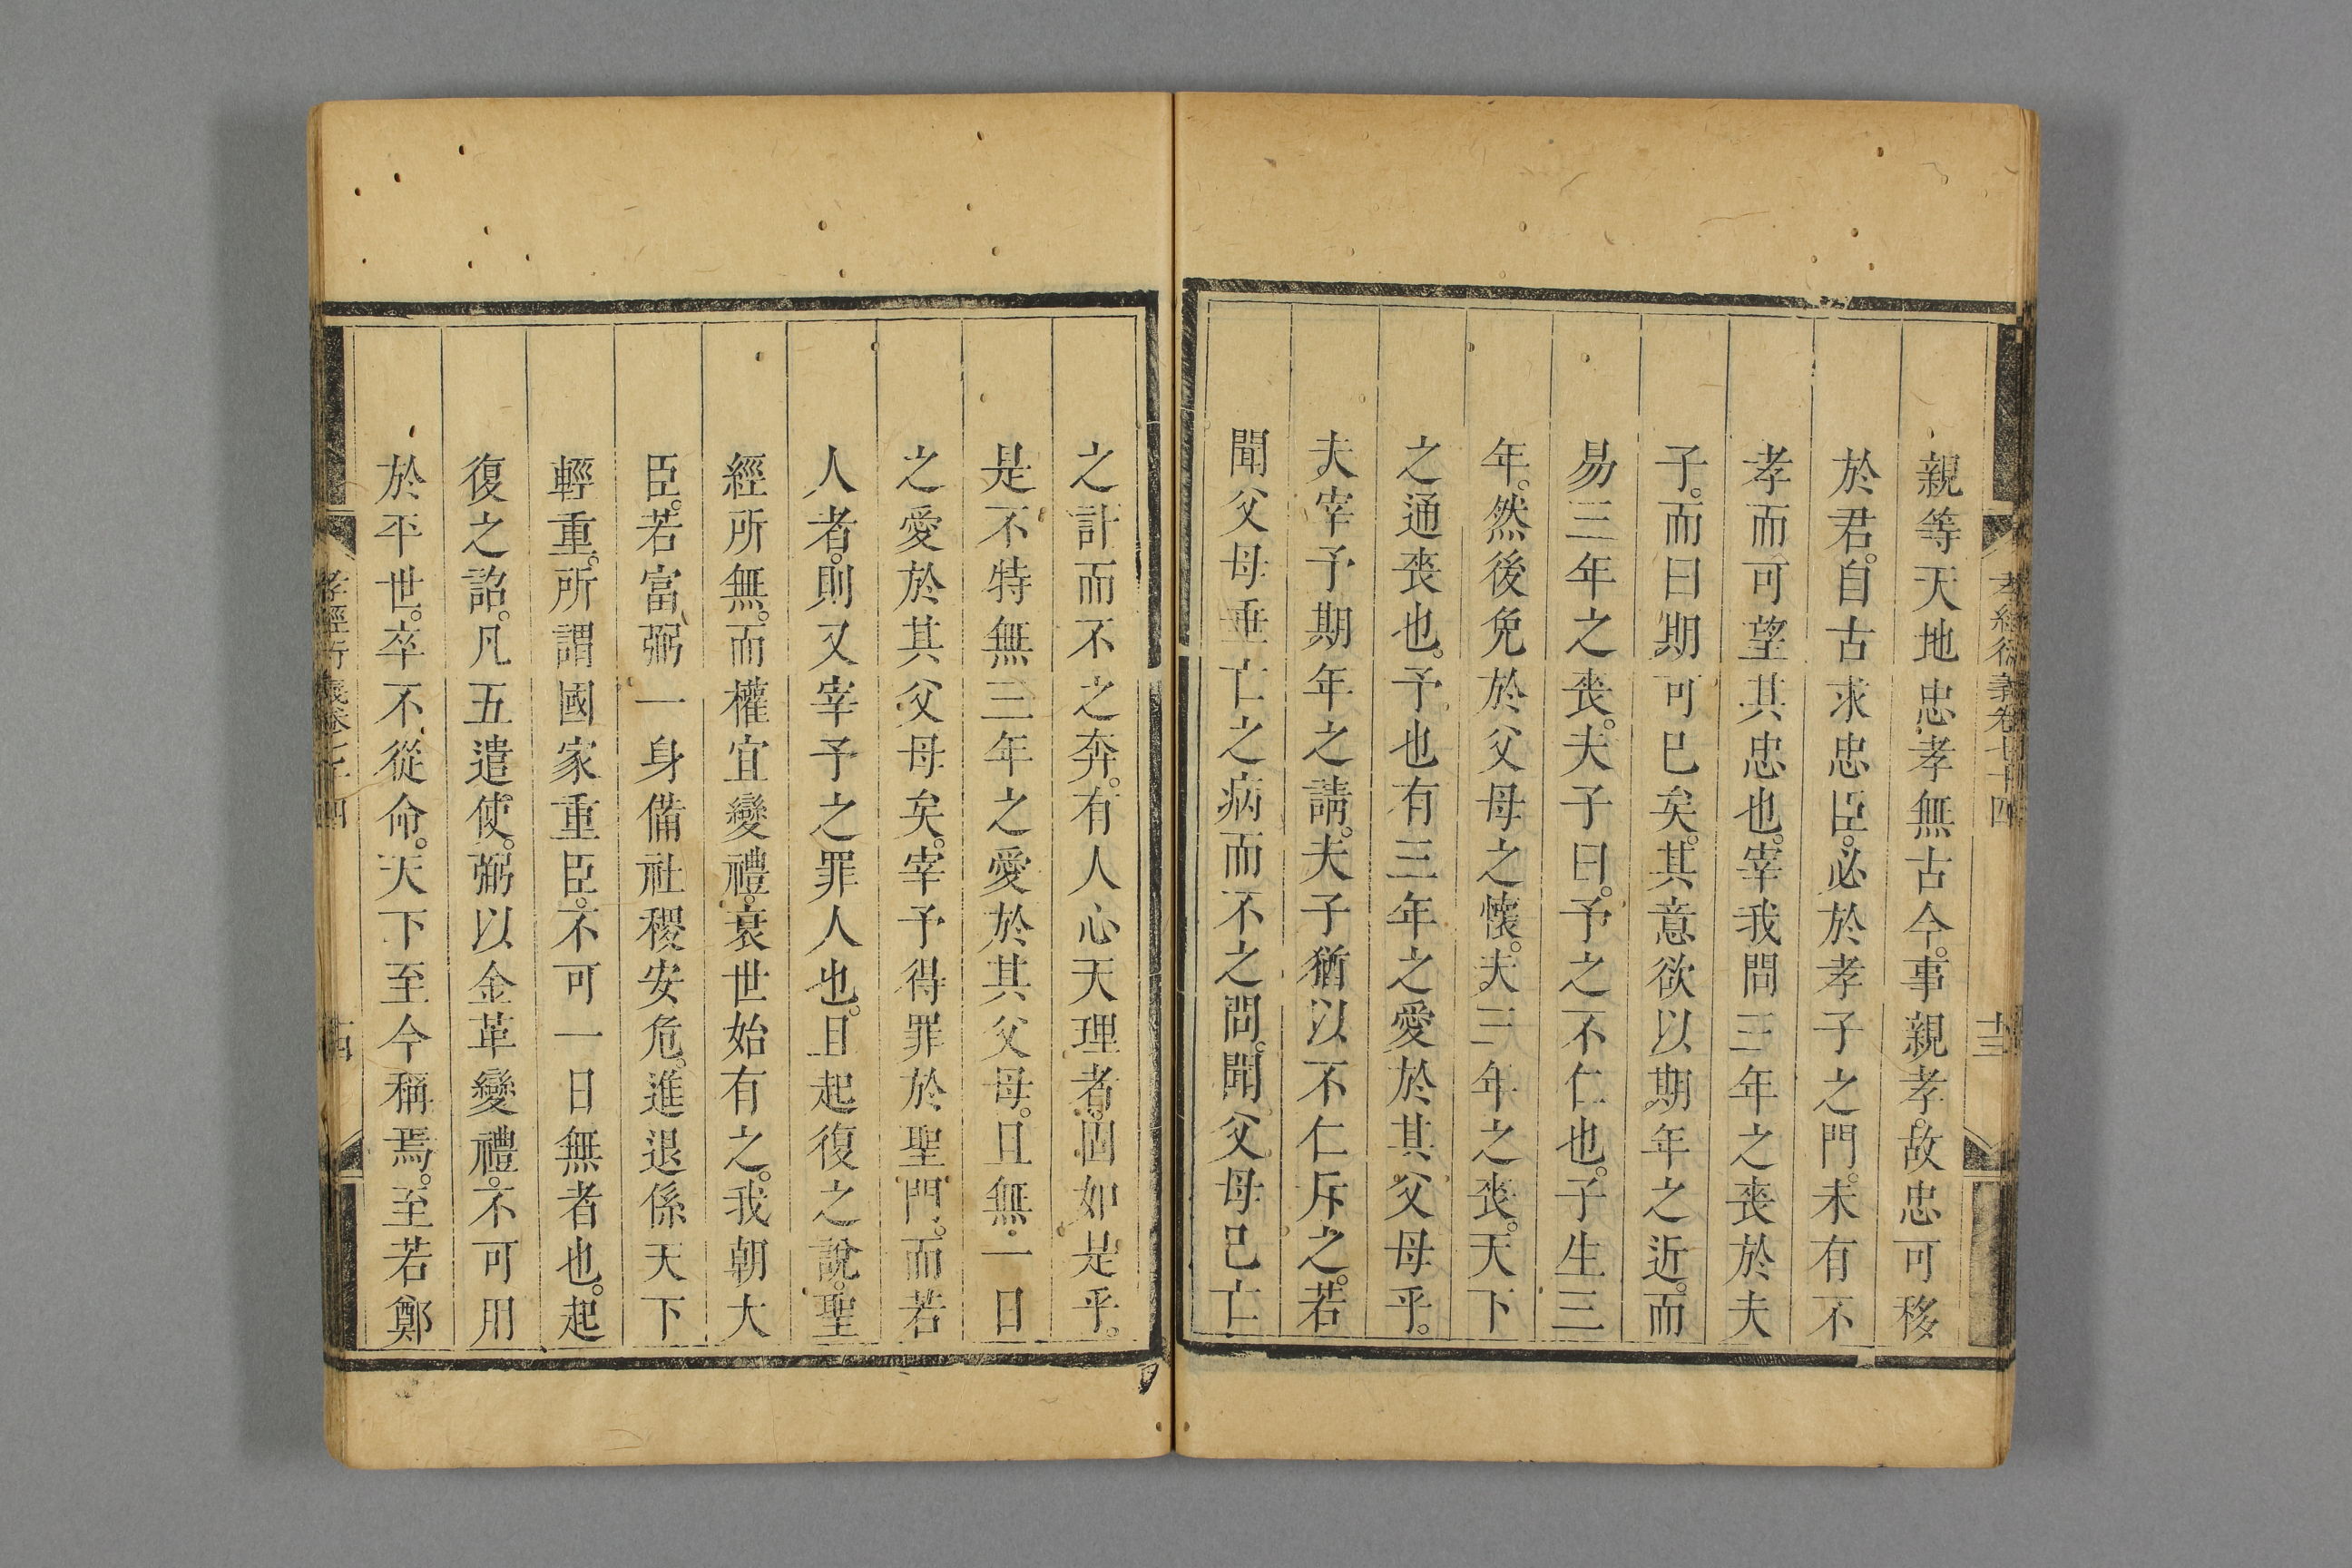 孝經衍義卷七十四
十三
親等天地忠孝無古今。事親孝。故忠可移
於君。自古求忠臣。必於孝子之門。未有不
孝而可望其忠也。宰我問三年之喪於夫
子。而曰期可已矣。其意欲以期年之近。而
易三年之喪。夫子曰。予之不仁也。子生三
年。然後免於父母之懷。夫三年之喪。天下
之通喪也。予也有三年之愛於其父母乎。
夫宰予期年之請。夫子猶以不仁斥之。若
聞父母垂亡之病而不之問。聞父母已亡
之計而不之奔。有人心天理者。固如是乎。
是不特無三年之愛於其父母。且無一日
之愛於其父母矣。宰予得罪於聖門。而若
人者。則又宰予之罪人也。且起復之說。聖
經所無。而權宜變禮。衰世始有之。我朝大
臣。若富弼一身備社稷安危。進退係天下
輕重。所謂國家重臣。不可一日無者也。起
復之詔。凡五遣使。弼以金革變禮。不可用
於平世。卒不從命。天下至今稱焉。至若鄭
孝經衍義卷七十四
十四